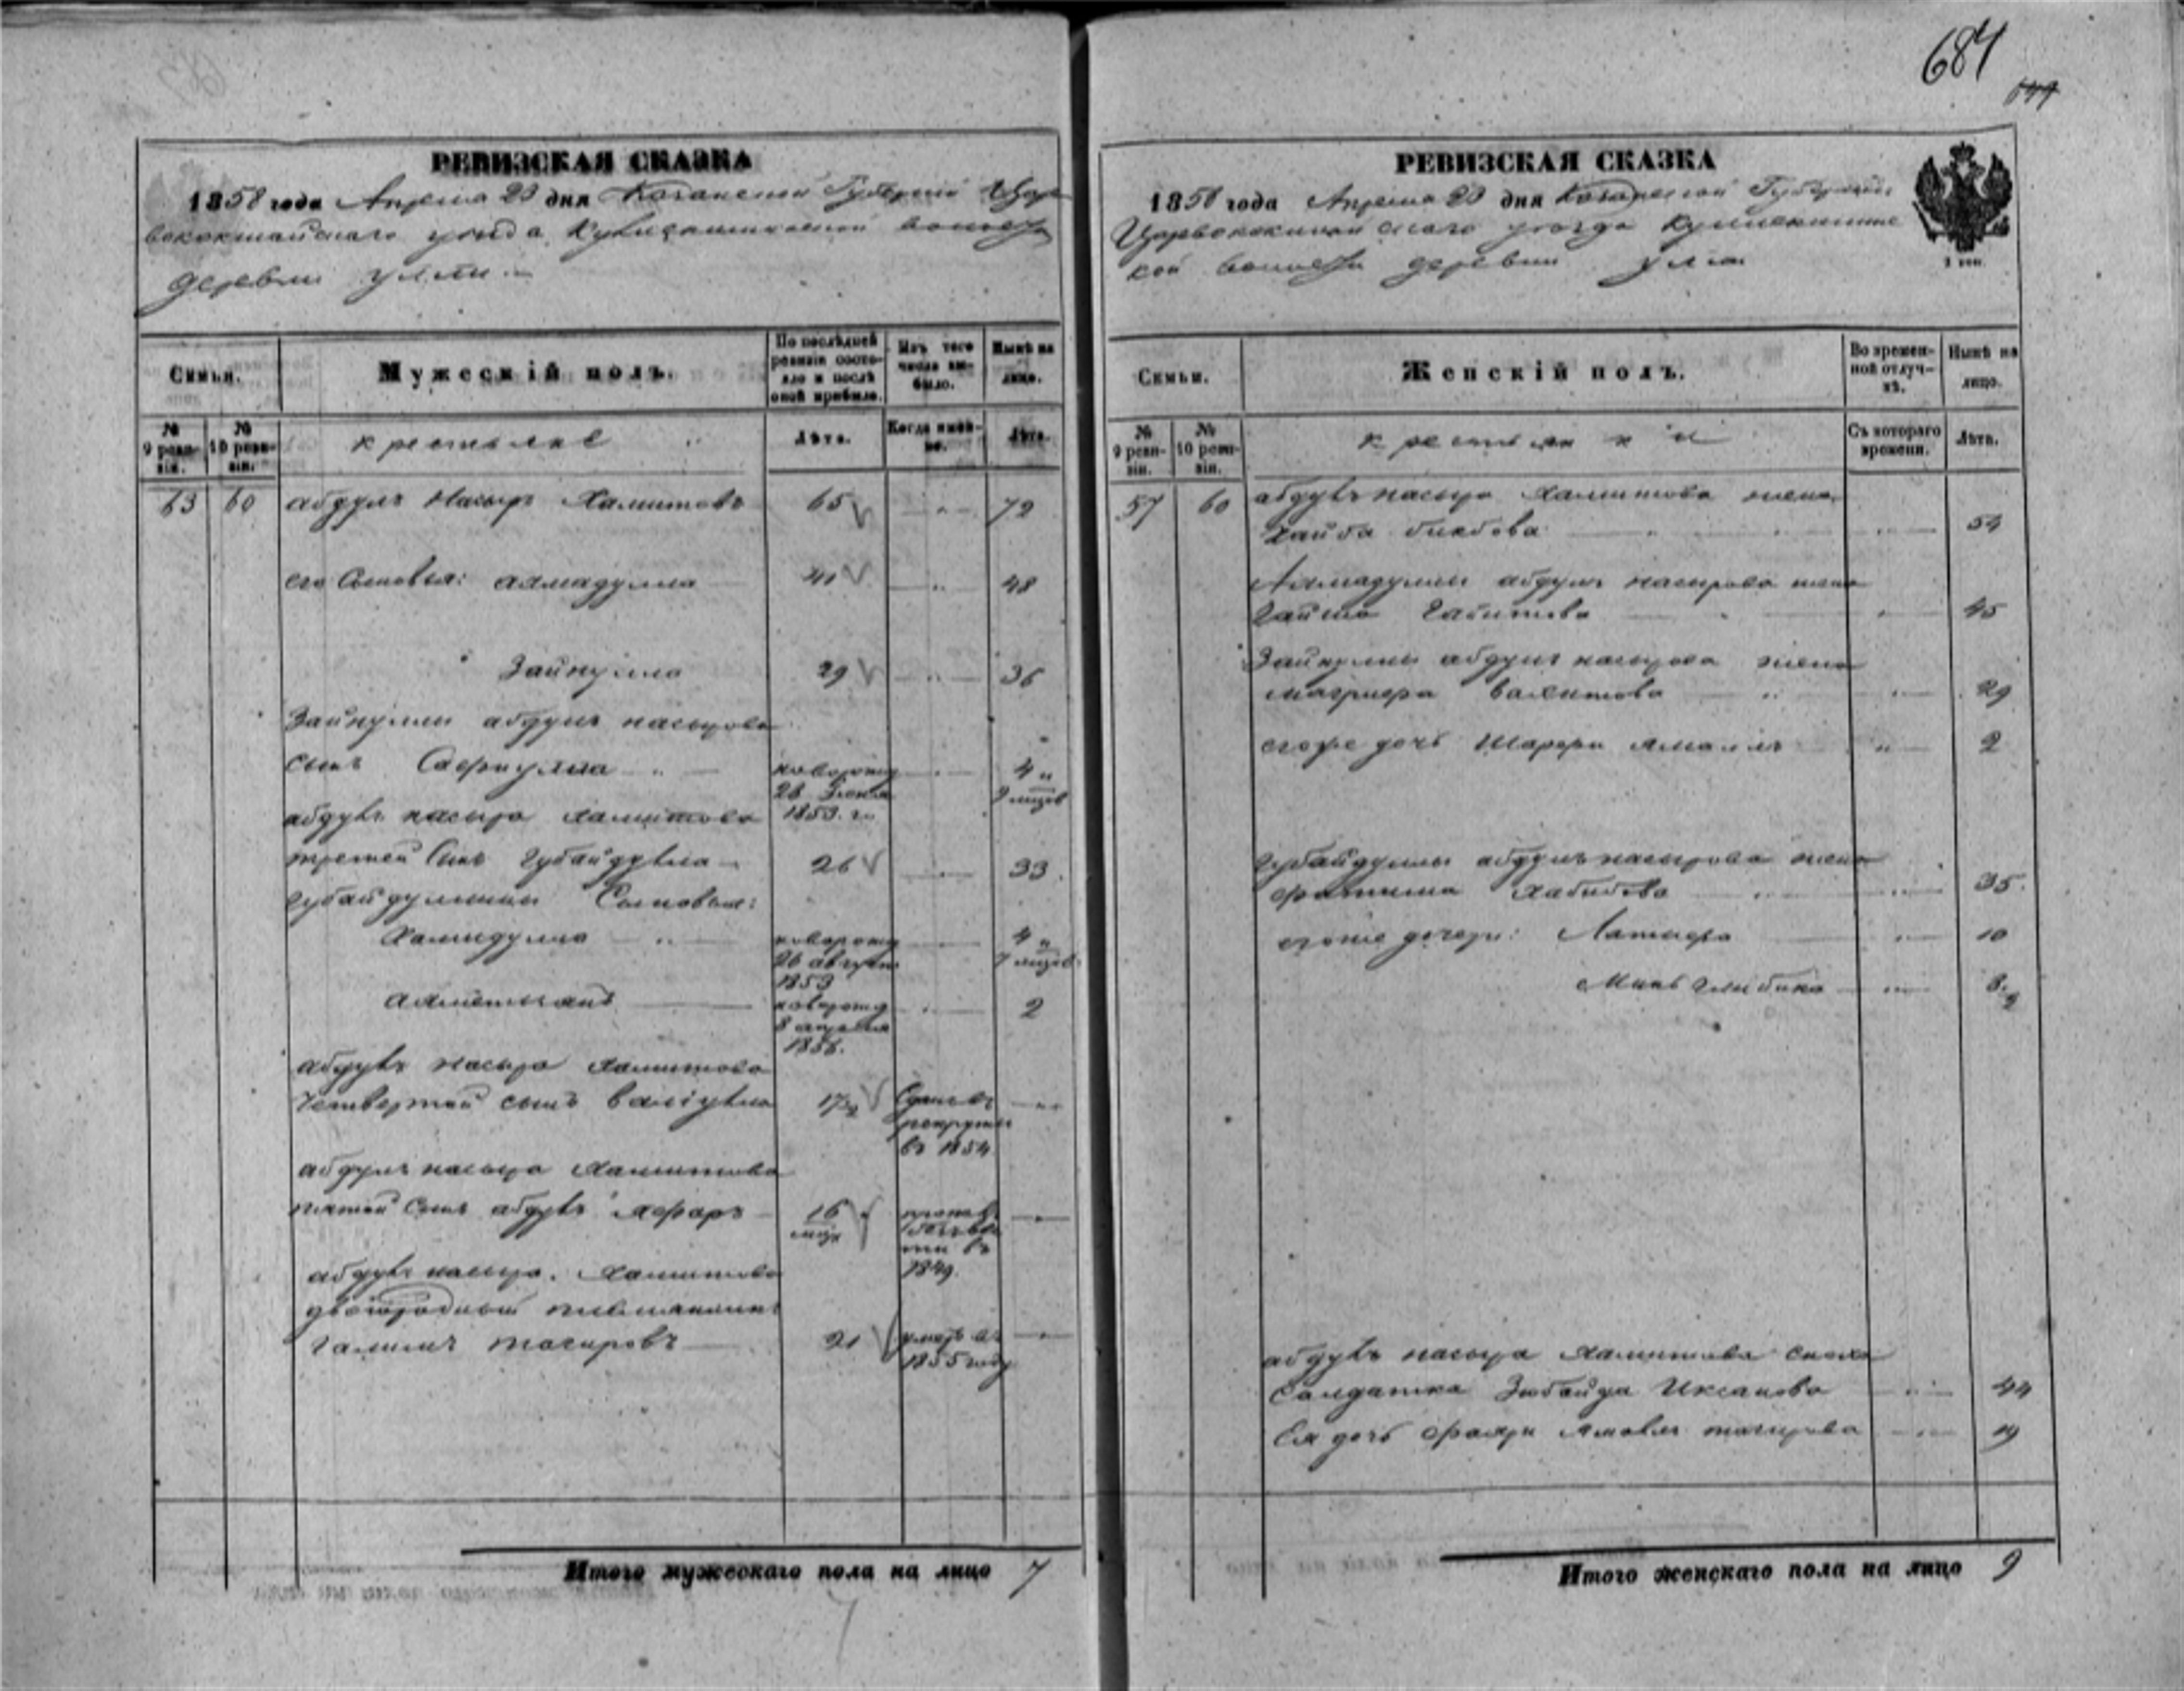 684
РЕВИЗСКАЯ СКАЗКА
1858 года Апреля 23 дня Казанской Губернии Царе
вококшайскаго уезда волости
деревни Улли
Семьи.
Мужескій полъ.
По послѣдней ревизіи состояло и послѣ оной прибыло.
Изъ того числа выбыло.
Нынѣ на лицо.
№ 9 ревизіи.
№ 10 ревизіи.
крестьяне
Лѣта.
Когда именно.
Лѣта.
63 60 абдулъ Насыръ Хамитовъ 65 72
его Сыновья: ахмадулла 41 48
Зайнулла 29 36
Зайнуллы абдулъ насырова
сынъ Сафиулла новорожд 4 и
28 1853. г. 9 мцов
абдулъ насыра хамитова
третей Сынъ Губайдулла 26 33
губайдуллины Сыновья:
Хамидулла новорожд 4 и
26 августа 7 мцов
1853
ахметьянъ новорожд 2
8 апреля
1856.
абдулъ насыра хамитова
Четвертой сынъ Валіулла 17 1/2 Сданъ въ
рекруты
въ 1854
абдулъ насыра хамитова
пятой Сынъ абдулъ 16
мцов
1849.
абдулъ насыра хамитова
двоюродный племянникъ
тагировъ 21 умеръ въ
1855 году
Итого мужескаго пола на лицо 7
РЕВИЗСКАЯ СКАЗКА
1858 года Апреля 23 дня Казанской Губернии
Царевококшайскаго уезда
кой волости деревни Улли
Семьи.
Женскій полъ.
Во временной отлучкѣ.
Нынѣ на лицо.
№ 9 ревизіи.
№ 10 ревизіи.
крестьянки
Съ котораго времени.
Лѣта.
57 60 абдулъ насыра хамитова жена
бикбова 54
Ахмадуллы абдулъ насырова жена
Габитова 45
Зайнуллы абдулъ насырова жена
Валитова 29
егоже дочь 2
Губайдуллы абдулъ насырова жена
фатима Хабибова 35
егоже дочери: Латифа 10
8 1/2
абдулъ насыра хамитова сноха
Солдатка Зюбайда Иксанова 44
Ея дочь тагирова 19
Итого женскаго пола на лицо 9